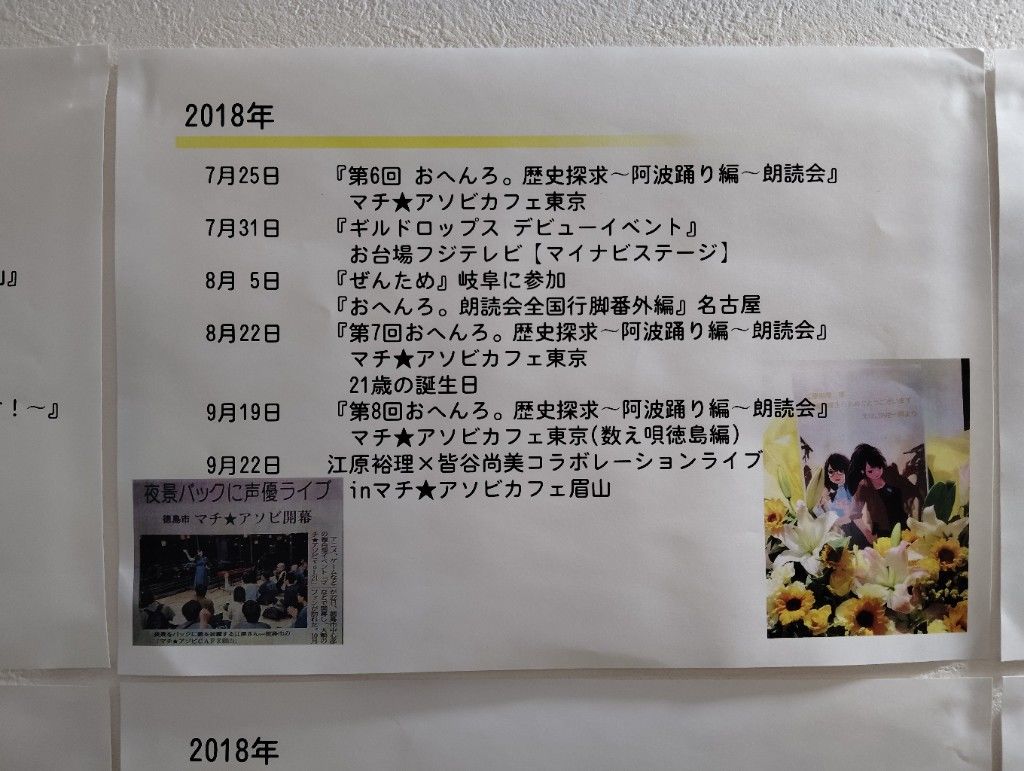 2018年
7月25日 『第6回 おへんろ。歴史探求～阿波踊り編～朗読会』
マチ★アソビカフェ東京
7月31日 『ギルドロップス デビューイベント』
お台場フジテレビ【マイナビステージ】
8月 5日 『ぜんため』岐阜に参加
『おへんろ。朗読会全国行脚番外編』名古屋
8月22日 『第7回おへんろ。歴史探求～阿波踊り編～朗読会』
マチ★アソビカフェ東京
21歳の誕生日
9月19日 『第8回おへんろ。歴史探求～阿波踊り編～朗読会』
マチ★アソビカフェ東京(数え唄徳島編)
9月22日 江原裕理×皆谷尚美コラボレーションライブ
inマチ★アソビカフェ眉山
夜景バックに声優ライブ
徳島市 マチ★アソビ開幕
』
！～』
2018年